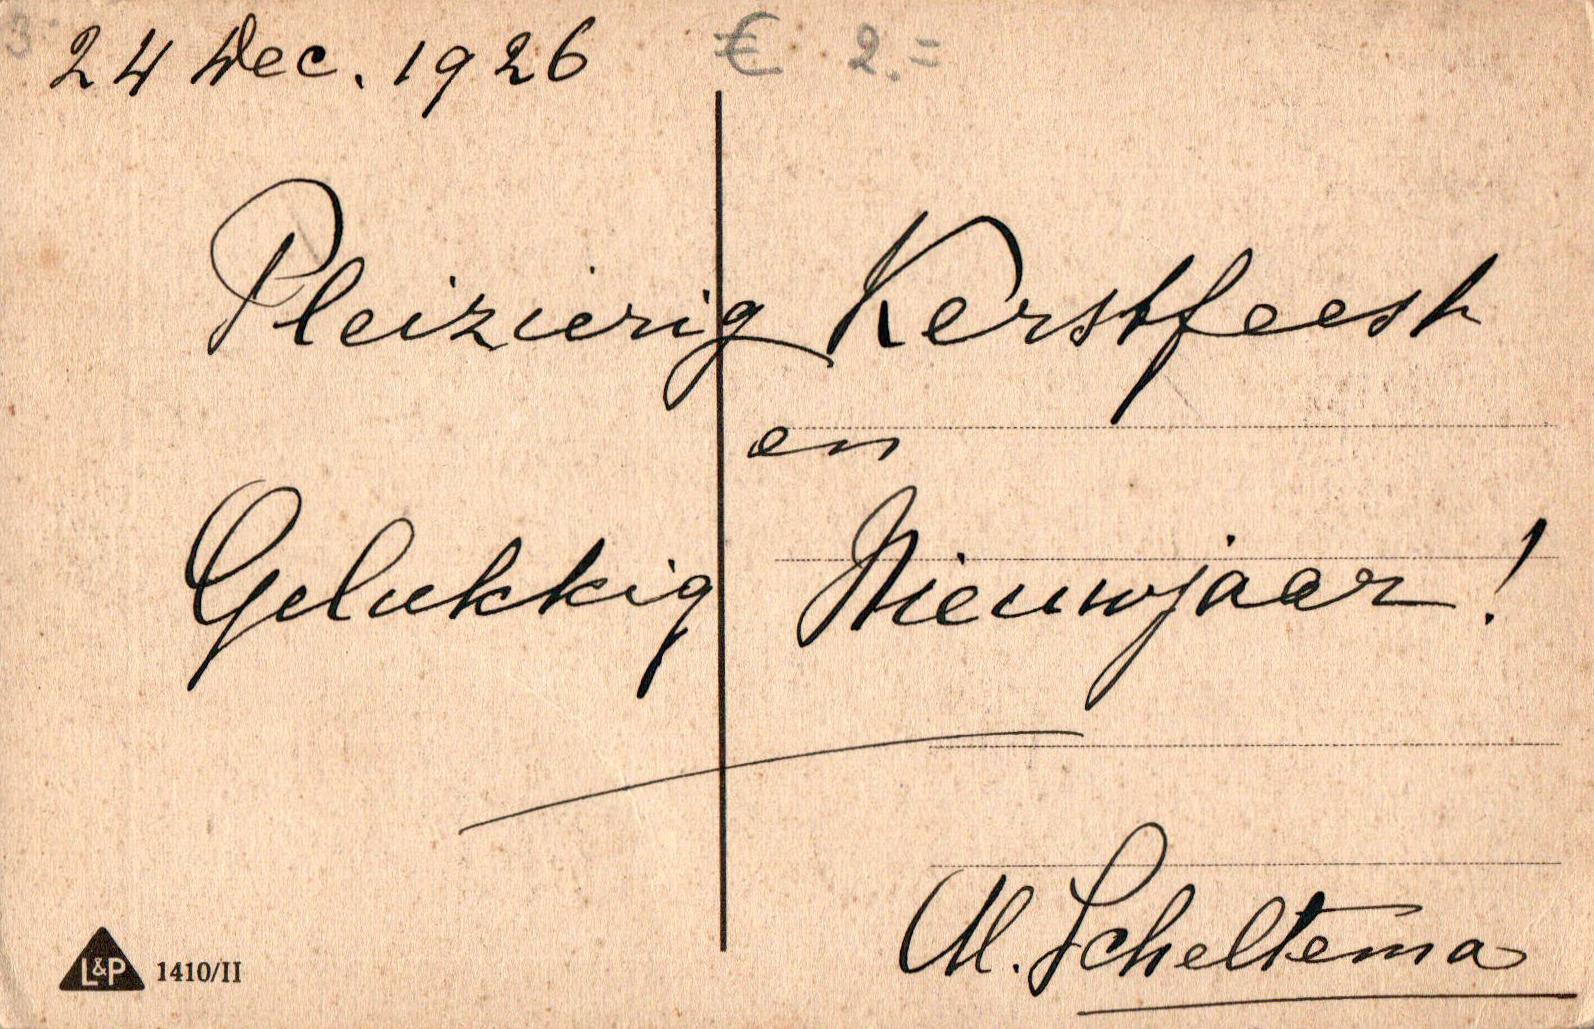 24 Dec. 1926
€ 2.=
Pleizierig Kerstfeest
en
Gelukkig Nieuwjaar!
M. Scheltema
L&P 1410/II